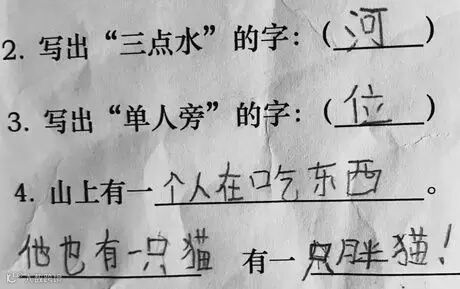 2. 写出“三点水”的字：（河）
3. 写出“单人旁”的字：（位）
4. 山上有一个人在吃东西。
他也有一只猫 有一只胖猫！